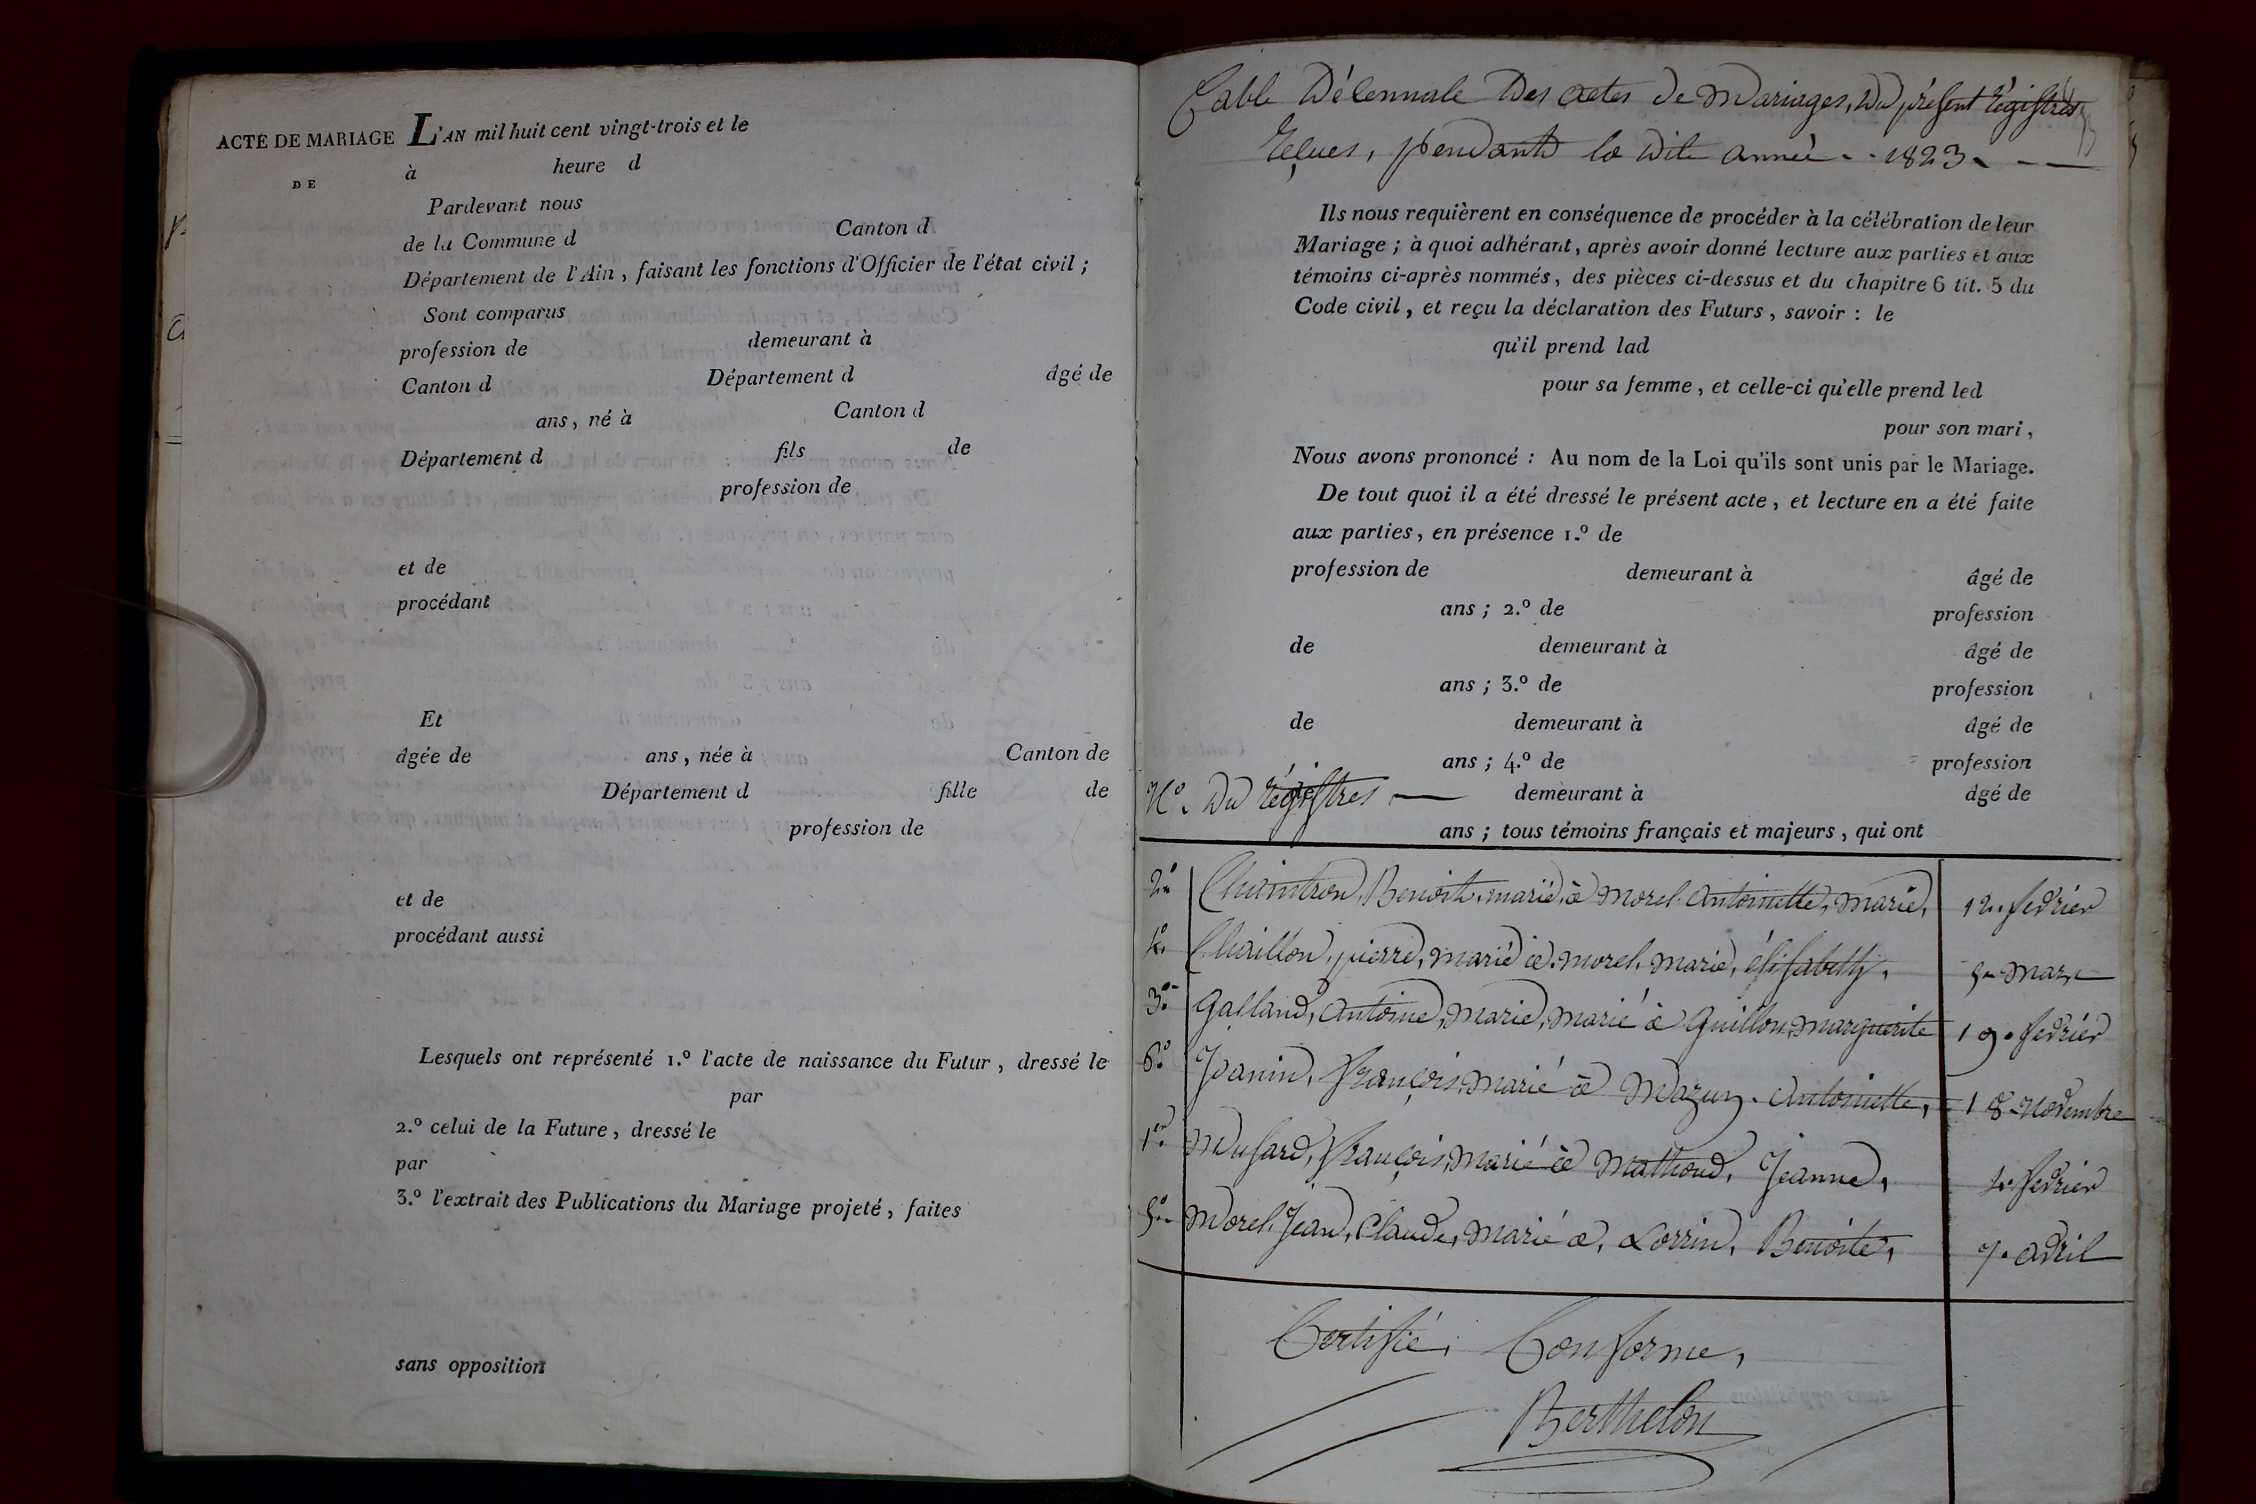 ACTE DE MARIAGE
DE
L'AN mil huit cent vingt-trois et le
à heure d
Pardevant nous
de la Commune d Canton d
Département de l'Ain, faisant les fonctions d'Officier de l'état civil ;
Sont comparus
profession de demeurant à
Canton d Département d âgé de
ans, né à Canton d
Département d fils de
profession de
et de
procédant
Et
âgée de ans, née à Canton de
Département d fille de
profession de
et de
procédant aussi
Lesquels ont représenté 1.º l'acte de naissance du Futur, dressé le
par
2.º celui de la Future, dressé le
par
3.º l'extrait des Publications du Mariage projeté, faites
sans opposition
Table Décennale Des actes De Mariages, Du présent régistres
Reçues, pendants la Dite année - - 1823 - - -
Ils nous requièrent en conséquence de procéder à la célébration de leur
Mariage ; à quoi adhérant, après avoir donné lecture aux parties et aux
témoins ci-après nommés, des pièces ci-dessus et du chapitre 6 tit. 5 du
Code civil, et reçu la déclaration des Futurs, savoir : le
qu'il prend lad
pour sa femme, et celle-ci qu'elle prend led
pour son mari,
Nous avons prononcé : Au nom de la Loi qu'ils sont unis par le Mariage.
De tout quoi il a été dressé le présent acte, et lecture en a été faite
aux parties, en présence 1.º de
profession de demeurant à âgé de
ans ; 2.º de profession
de demeurant à âgé de
ans ; 3.º de profession
de demeurant à âgé de
ans ; 4.º de profession
de demeurant à âgé de
Nº. Du régistres.
ans ; tous témoins français et majeurs, qui ont
2e Chaintron, Benoit, marié, à Morel Antoinette, Marie, 12. fevrier
4º Chaillon, pierre, marié à Morel, Marie, élisabeth, 5 Mars
3º Galland, Antoine, Marie, Marié à Guillon, Marguerite 19. fevrier
6º Joanin, François, Marié à Mazuy. Antoinette, 18 Novembre
1er Musard, François, Marié à Mathoud, Jeanne, fevrier
5º Morel, Jean, Claude, Marié à, Lorrin, Benoite, 7. avril
Certifié, Conforme,
Berthelon